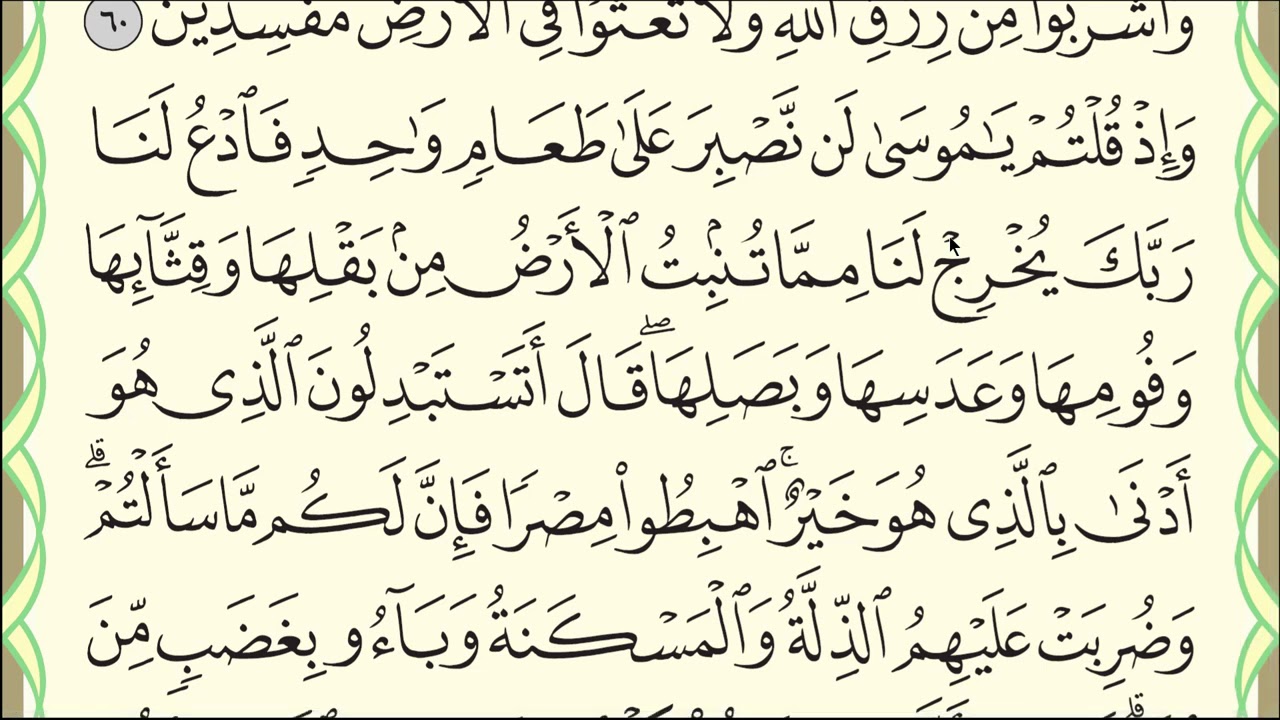 وَٱشْرَبُوا۟ مِن رِّزْقِ ٱللَّهِ وَلَا تَعْثَوْا۟ فِى ٱلْأَرْضِ مُفْسِدِينَ ٦٠
وَإِذْ قُلْتُمْ يَـٰمُوسَىٰ لَن نَّصْبِرَ عَلَىٰ طَعَامٍ وَٰحِدٍ فَٱدْعُ لَنَا
رَبَّكَ يُخْرِجْ لَنَا مِمَّا تُنۢبِتُ ٱلْأَرْضُ مِنۢ بَقْلِهَا وَقِثَّآئِهَا
وَفُومِهَا وَعَدَسِهَا وَبَصَلِهَا ۖ قَالَ أَتَسْتَبْدِلُونَ ٱلَّذِى هُوَ
أَدْنَىٰ بِٱلَّذِى هُوَ خَيْرٌ ۚ ٱهْبِطُوا۟ مِصْرًا فَإِنَّ لَكُم مَّا سَأَلْتُمْ ۗ
وَضُرِبَتْ عَلَيْهِمُ ٱلذِّلَّةُ وَٱلْمَسْكَنَةُ وَبَآءُو بِغَضَبٍ مِّنَ